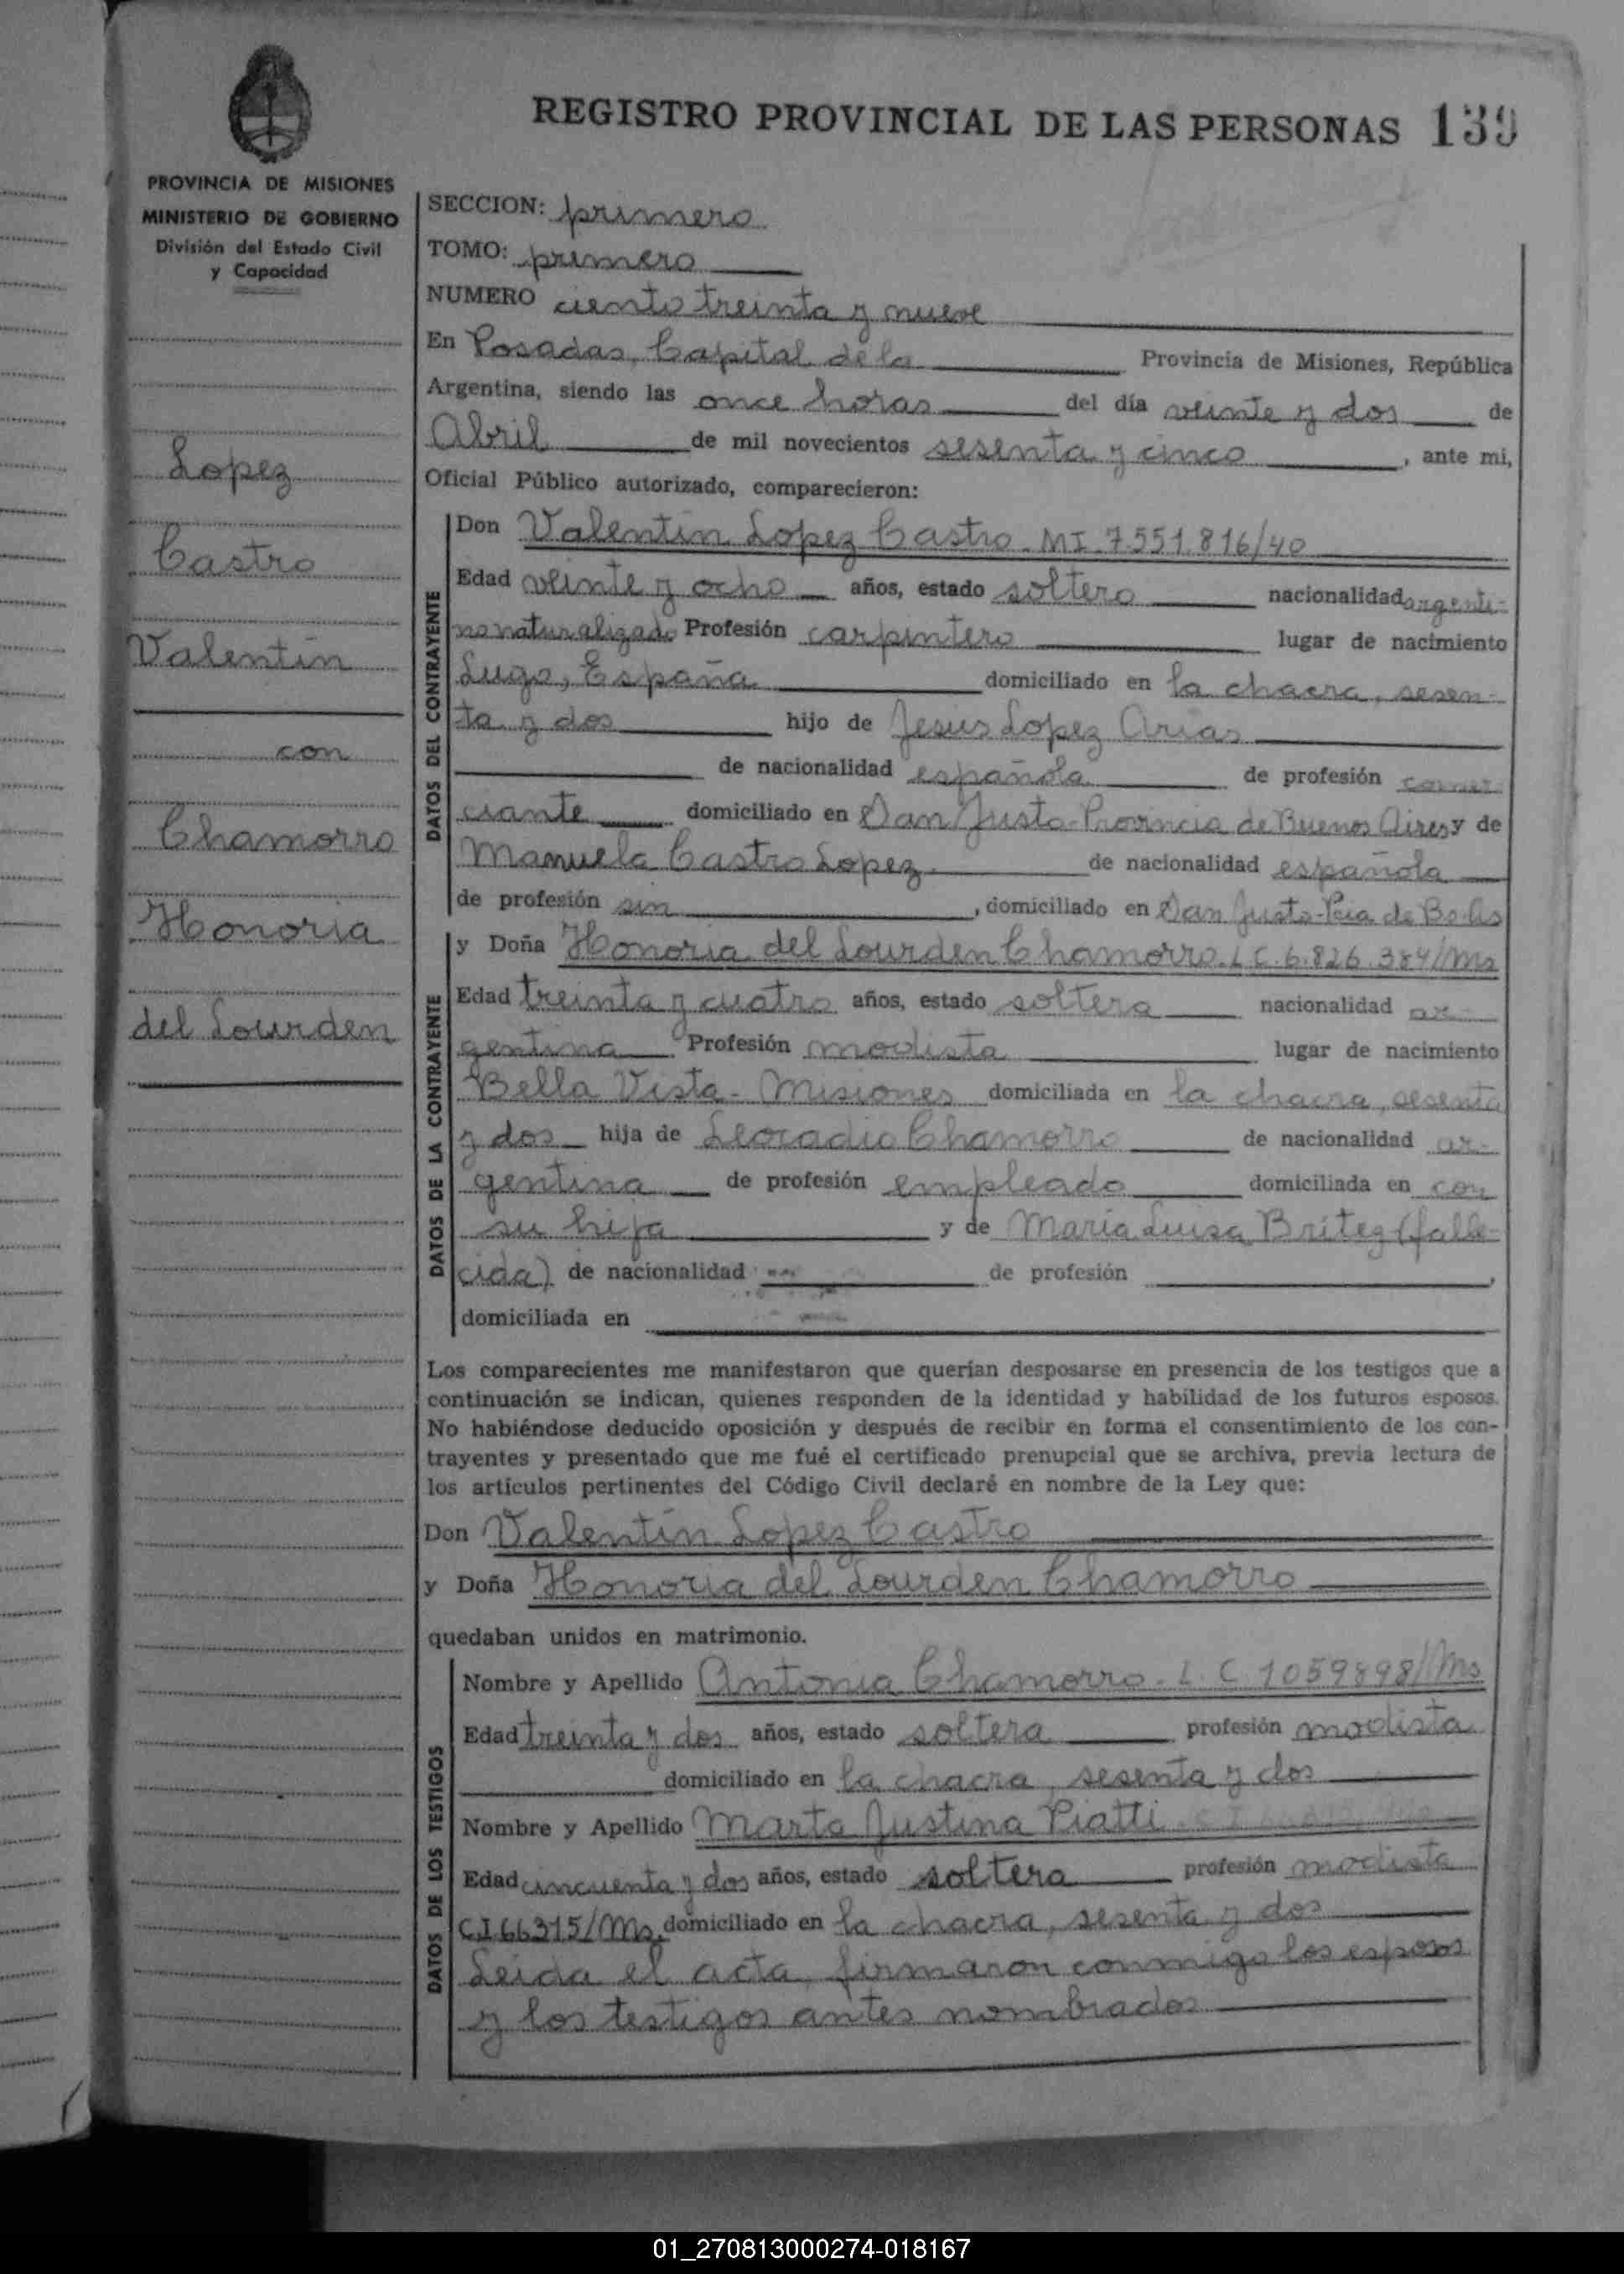 REGISTRO PROVINCIAL DE LAS PERSONAS 139
PROVINCIA DE MISIONES
MINISTERIO DE GOBIERNO
División del Estado Civil
y Capacidad
Lopez
Castro
Valentín
con
Chamorro
Honoria
del Lourden
SECCION: primero
TOMO: primero
NUMERO ciento treinta y nueve
En Posadas, Capital de la Provincia de Misiones, República
Argentina, siendo las once horas del día veinte y dos de
Abril de mil novecientos sesenta y cinco, ante mi,
Oficial Público autorizado, comparecieron:
DATOS DEL CONTRAYENTE
Don Valentín Lopez Castro. MI. 7.551.816/40
Edad veinte y ocho años, estado soltero nacionalidad argenti-
no naturalizado Profesión carpintero lugar de nacimiento
Lugo, España domiciliado en la chacra, sesen-
ta y dos hijo de Jesús Lopez Arias
de nacionalidad española de profesión comer
ciante domiciliado en San Justo-Provincia de Buenos Aires y de
Manuela Castro Lopez de nacionalidad española
de profesión sin, domiciliado en San Justo-Pcia de Bs-As
DATOS DE LA CONTRAYENTE
y Doña Honoria del Lourden Chamorro. L C. 6.826.384/Ms
Edad treinta y cuatro años, estado soltera nacionalidad ar-
gentina Profesión modista lugar de nacimiento
Bella Vista - Misiones domiciliada en la chacra, sesenta
y dos hija de Leocadio Chamorro de nacionalidad ar-
gentina de profesión empleado domiciliada en con
su hija y de María Luisa Britez (falle-
cida) de nacionalidad de profesión ,
domiciliada en
Los comparecientes me manifestaron que querían desposarse en presencia de los testigos que a
continuación se indican, quienes responden de la identidad y habilidad de los futuros esposos.
No habiéndose deducido oposición y después de recibir en forma el consentimiento de los con-
trayentes y presentado que me fué el certificado prenupcial que se archiva, previa lectura de
los artículos pertinentes del Código Civil declaré en nombre de la Ley que:
Don Valentín Lopez Castro
y Doña Honoria del Lourden Chamorro
quedaban unidos en matrimonio.
DATOS DE LOS TESTIGOS
Nombre y Apellido Antonia Chamorro - L. C 1059898/Ms
Edad treinta y dos años, estado soltera profesión modista
domiciliado en la chacra, sesenta y dos
Nombre y Apellido Marta Justina Piatti
Edad cincuenta y dos años, estado soltera profesión modista
C.I 66315/Ms. domiciliado en la chacra, sesenta y dos
Leida el acta, firmaron conmigo los esposos
y los testigos antes nombrados
01_270813000274-018167